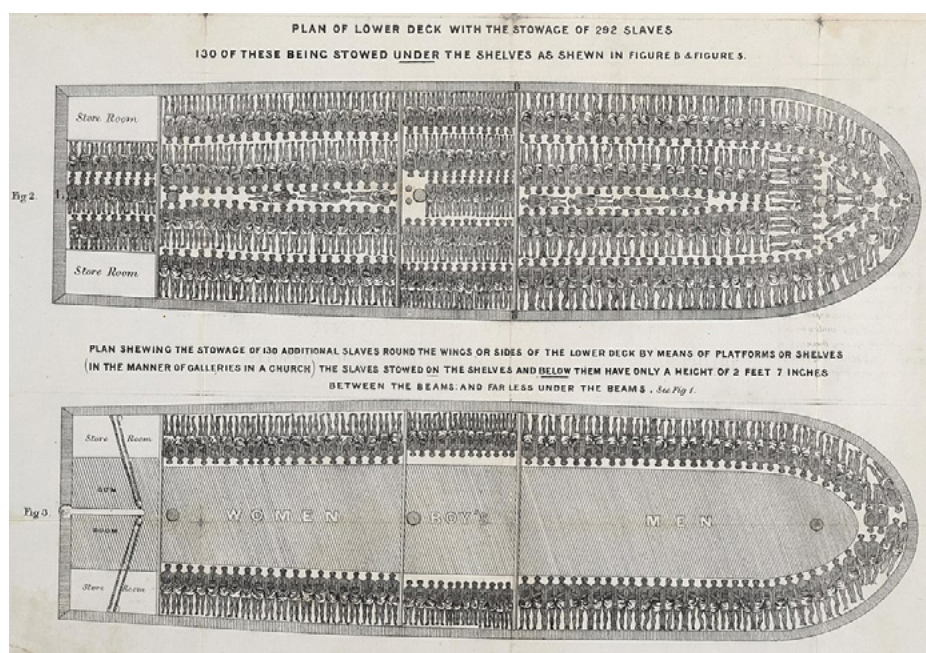 PLAN OF LOWER DECK WITH THE STOWAGE OF 292 SLAVES
130 OF THESE BEING STOWED UNDER THE SHELVES AS SHEWN IN FIGURE B & FIGURE 5.
Store Room
Fig 2.
Store Room
PLAN SHEWING THE STOWAGE OF 130 ADDITIONAL SLAVES ROUND THE WINGS OR SIDES OF THE LOWER DECK BY MEANS OF PLATFORMS OR SHELVES
(IN THE MANNER OF GALLERIES IN A CHURCH) THE SLAVES STOWED ON THE SHELVES AND BELOW THEM HAVE ONLY A HEIGHT OF 2 FEET 7 INCHES
BETWEEN THE BEAMS: AND FAR LESS UNDER THE BEAMS. See Fig 1.
Store Room
GUN
Fig 3.
WOMEN
BOY'S
MEN
ROOM
Store Room